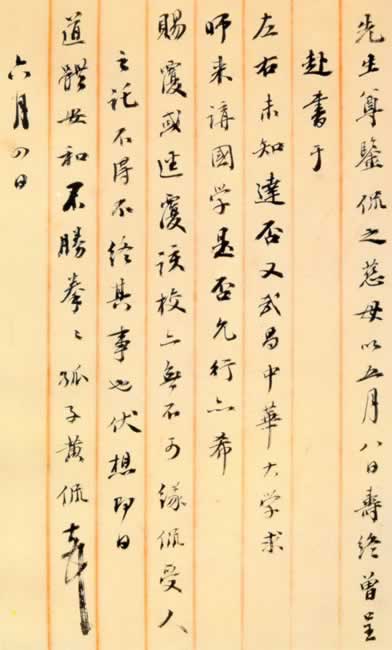 先生尊鑒侃之慈母以五月八日壽終曾呈
赴書于
左右未知達否又武昌中華大学求
师来講國学是否允行亦希
賜覆或逕覆该校亦無不可缘侃受人
之託不得不终其事也伏想即日
道體安和不勝拳〻孤子黄侃
六月四日